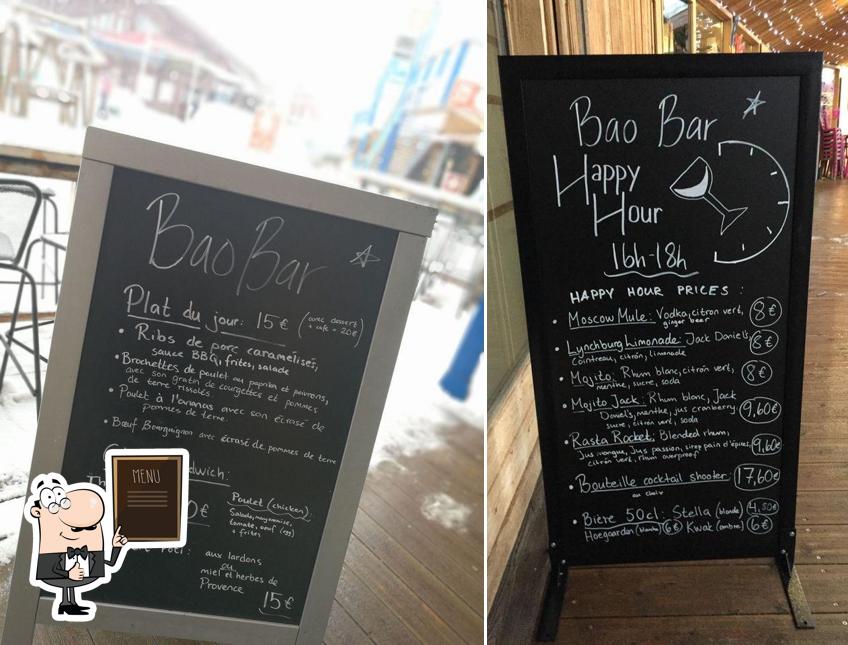 Bao Bar
Plat du jour: 15€ (avec dessert
+ café = 20€)
• Ribs de porc caramélisés,
sauce BBQ, frites, salade
• Brochettes de poulet au paprika et poivrons,
avec son gratin de courgettes et pommes
de terre rissolés
• Poulet à l'ananas avec son écrasé de
pommes de terre.
• Bœuf Bourguignon avec écrasé de pommes de terre
dwich:
0€
Poulet (chicken):
Salade, mayonnaise,
tomate, oeuf (egg)
+ frites
aux lardons
ou
miel et herbes de
Provence
15€
MENU
Bao Bar
Happy
Hour
16h-18h
HAPPY HOUR PRICES :
• Moscow Mule: Vodka, citron vert,
ginger beer 8€
• Lynchburg Limonade: Jack Daniel's
Cointreau, citron, limonade 8€
• Mojito: Rhum blanc, citron vert,
menthe, sucre, soda 8€
• Mojito Jack: Rhum blanc, Jack
Daniel's, menthe, jus cranberry,
sucre, citron vert, soda 9,60€
• Rasta Rocket: Blended rhum,
Jus mangue, Jus passion, sirop pain d'épices,
citron vert, rhum overproof 9,60€
• Bouteille cocktail shooter: 17,60€
au choix
• Bière 50cl: Stella (blonde) 4,50€
Hoegaarden (blanche) 6€ Kwak (ambre) 6€